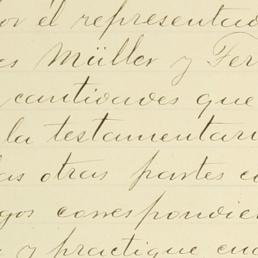 por él representad
es Müller y Fer
cantidades que
la testamentari
las otras partes co
gos correspondien
y practique cua